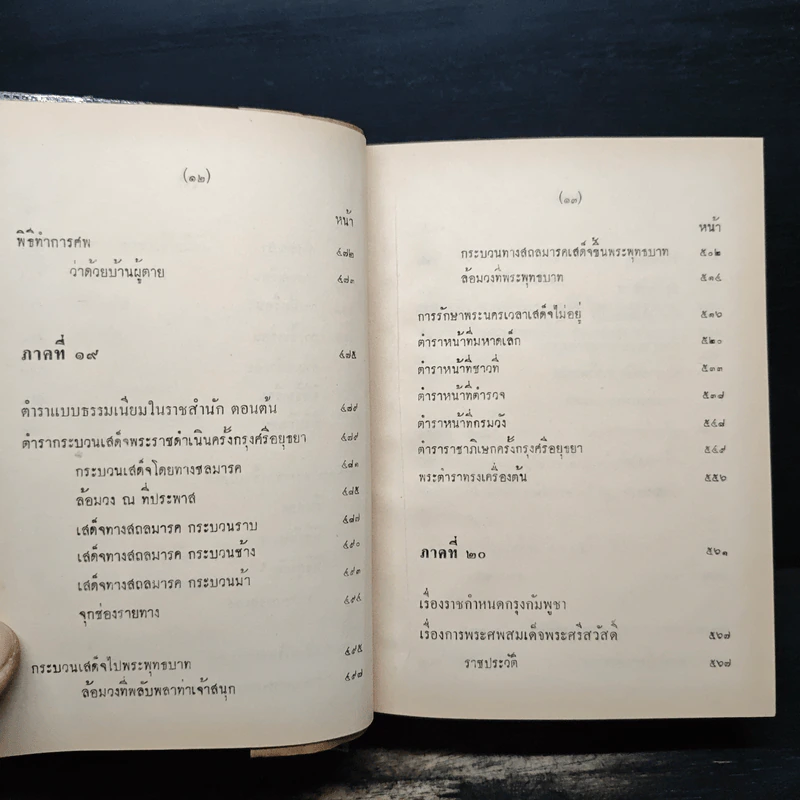 (๑๒)
หน้า
พิธีทำการศพ ๔๗๒
ว่าด้วยบ้านผู้ตาย ๔๗๓
ภาคที่ ๑๙ ๔๗๕
ตำราแบบธรรมเนียมในราชสำนัก ตอนต้น ๔๗๙
ตำรากระบวนเสด็จพระราชดำเนินครั้งกรุงศรีอยุธยา ๔๗๙
กระบวนเสด็จโดยทางชลมารค ๔๘๑
ล้อมวง ณ ที่ประพาส ๔๘๕
เสด็จทางสถลมารค กระบวนราบ ๔๘๗
เสด็จทางสถลมารค กระบวนช้าง ๔๙๐
เสด็จทางสถลมารค กระบวนม้า ๔๙๓
จุกช่องรายทาง ๔๙๔
กระบวนเสด็จไปพระพุทธบาท ๔๙๕
ล้อมวงที่พลับพลาท่าเจ้าสนุก ๔๙๗
(๑๓)
หน้า
กระบวนทางสถลมารคเสด็จขึ้นพระพุทธบาท ๕๐๒
ล้อมวงที่พระพุทธบาท ๕๑๔
การรักษาพระนครเวลาเสด็จไม่อยู่ ๕๑๖
ตำราหน้าที่มหาดเล็ก ๕๒๐
ตำราหน้าที่ชาวที่ ๕๓๓
ตำราหน้าที่ตำรวจ ๕๓๘
ตำราหน้าที่กรมวัง ๕๔๘
ตำราราชาภิเษกครั้งกรุงศรีอยุธยา ๕๔๙
พระตำราทรงเครื่องต้น ๕๕๖
ภาคที่ ๒๐ ๕๖๑
เรื่องราชกำหนดกรุงกัมพูชา
เรื่องการพระศพสมเด็จพระศรีสวัสดิ์ ๕๖๗
ราชประวัติ ๕๖๗